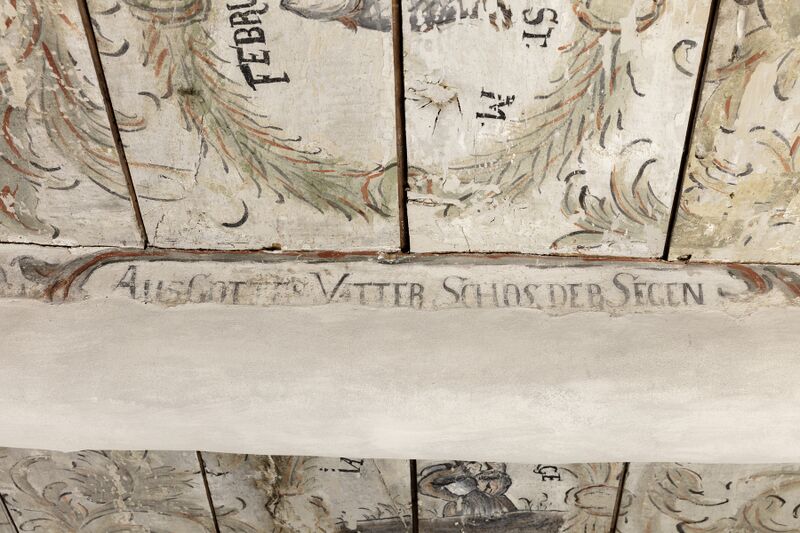 FEBRU
ST
M
AUS GOTTES VATTER SCHOS DER SEGEN